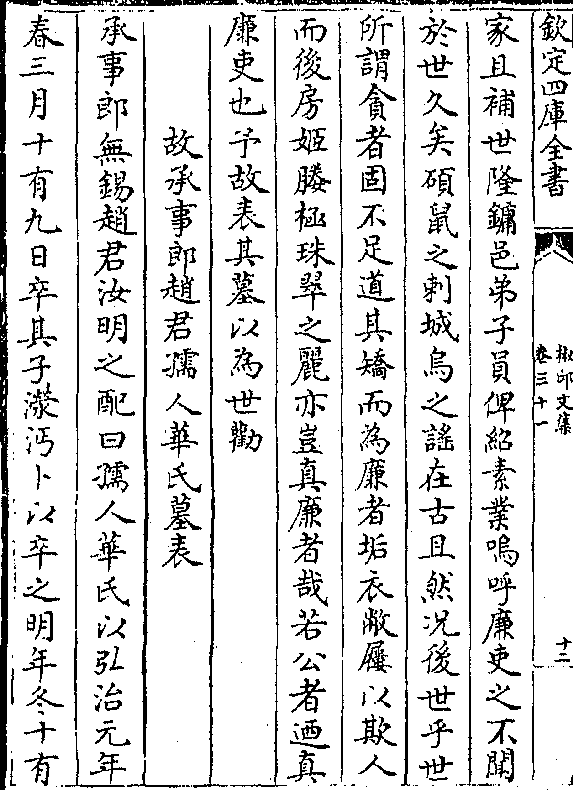 欽定四庫全書
椒邱文集
卷三十一
十二
家且補世隆鏞邑弟子員俾紹素業嗚呼廉吏之不聞
於世久矣碩鼠之刺城烏之謠在古且然况後世乎世
所謂貪者固不足道其矯而為廉者垢衣敝屨以欺人
而後房姬媵極珠翠之麗亦豈真廉者哉若公者廼真
廉吏也予故表其墓以為世勸
故承事郎趙君孺人華氏墓表
承事郎無錫趙君汝明之配曰孺人華氏以弘治元年
春三月十有九日卒其子瀠沔卜以卒之明年冬十有